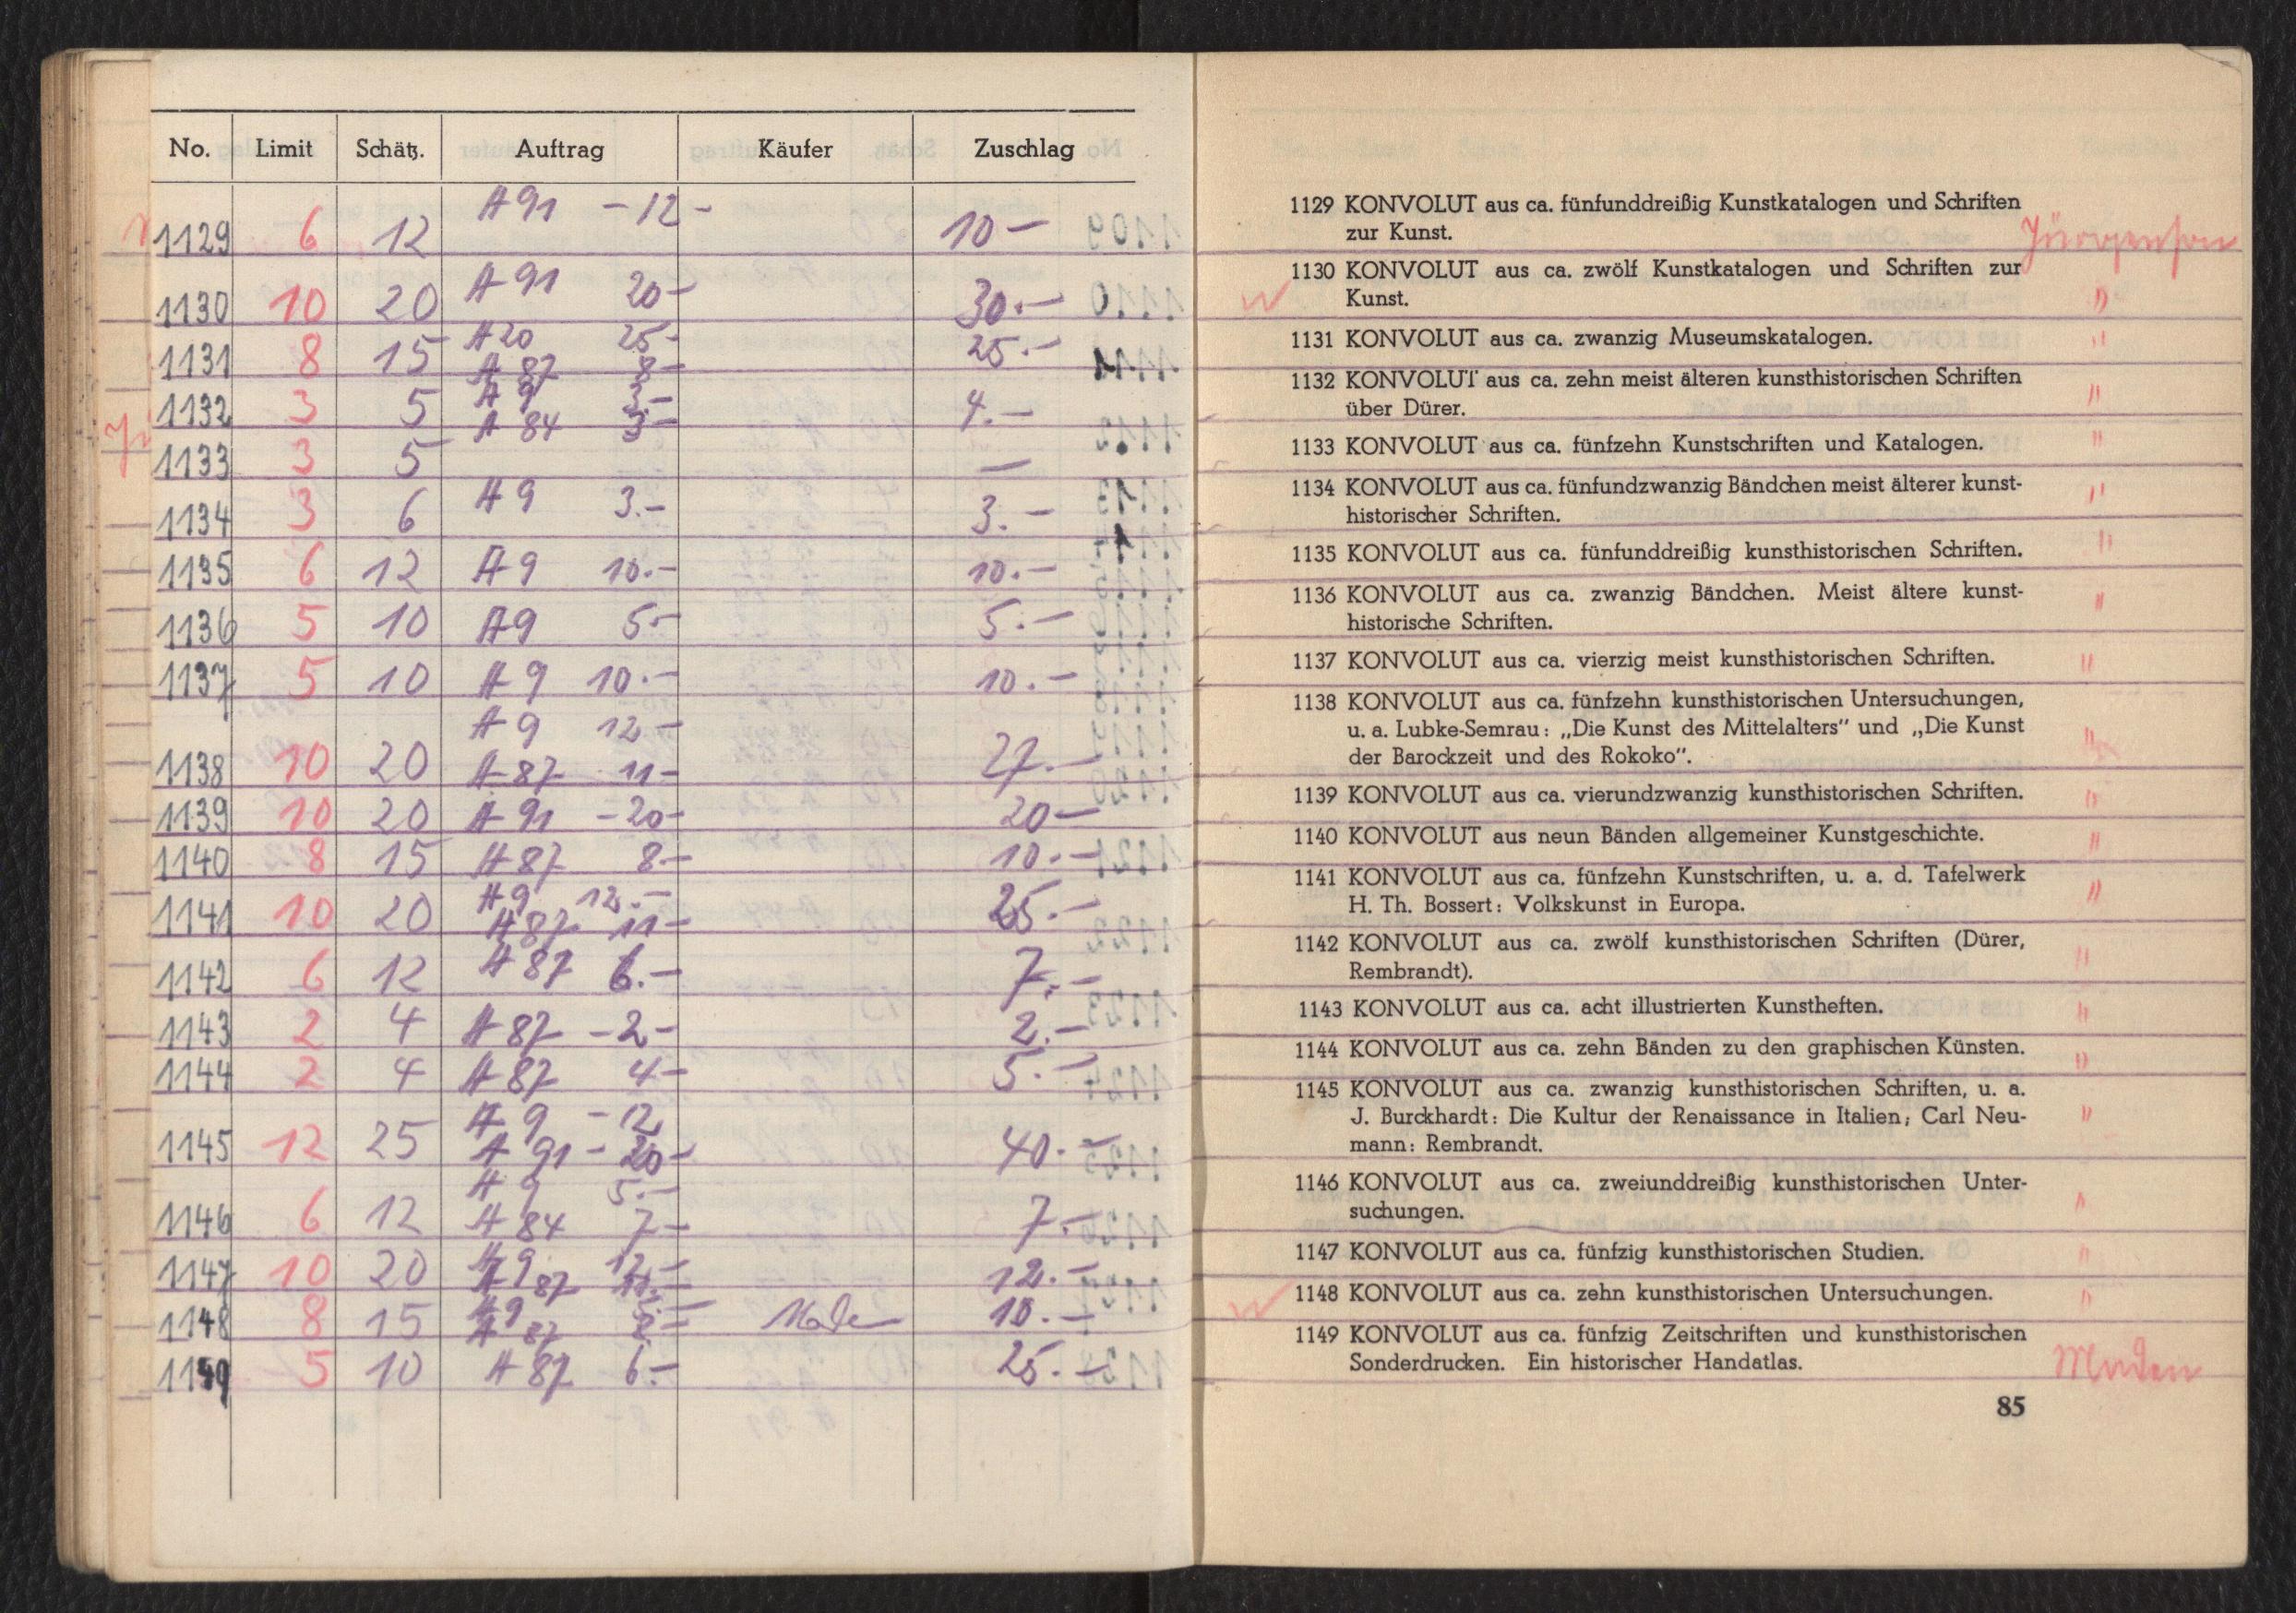 No. Limit Schätz. Auftrag Käufer Zuschlag
A 91 - 12 -
1129 6 12 10 -
A 91 20 -
1130 10 20 30.-
A 20 25.-
1131 8 15 A 87 8 - 25.-
A 9 3.-
1132 3 5 A 84 3 - 4.-
1133 3 5 —
A 9 3.-
1134 3 6 3.-
1135 6 12 A 9 10.- 10.-
1136 5 10 A 9 5.- 5.-
1137 5 10 A 9 10.- 10.-
A 9 12 -
1138 10 20 A 87 11 - 27.-
1139 10 20 A 91 - 20 - 20 -
1140 8 15 A 87 8 - 10.-
A 9 12.-
1141 10 20 A 87 11 - 25.-
1142 6 12 A 87 6.- 7.-
1143 2 4 A 87 - 2 - 2.-
1144 2 4 A 87 4 - 5.-
A 9 - 12
1145 12 25 A 91 - 20 - 40.-
A 9 5.-
1146 6 12 A 84 7 - 7.-
A 9 12.-
1147 10 20 A 87 11.- 12.-
A 9 5.-
1148 8 15 A 87 8 - 10.-
1149 5 10 A 87 6.- 25.-
1129 KONVOLUT aus ca. fünfunddreißig Kunstkatalogen und Schriften
zur Kunst. Jürgensen
1130 KONVOLUT aus ca. zwölf Kunstkatalogen und Schriften zur
Kunst. "
1131 KONVOLUT aus ca. zwanzig Museumskatalogen. "
1132 KONVOLUT aus ca. zehn meist älteren kunsthistorischen Schriften
über Dürer. "
1133 KONVOLUT aus ca. fünfzehn Kunstschriften und Katalogen. "
1134 KONVOLUT aus ca. fünfundzwanzig Bändchen meist älterer kunst-
historischer Schriften. "
1135 KONVOLUT aus ca. fünfunddreißig kunsthistorischen Schriften. "
1136 KONVOLUT aus ca. zwanzig Bändchen. Meist ältere kunst-
historische Schriften. "
1137 KONVOLUT aus ca. vierzig meist kunsthistorischen Schriften. "
1138 KONVOLUT aus ca. fünfzehn kunsthistorischen Untersuchungen,
u. a. Lubke-Semrau: „Die Kunst des Mittelalters" und „Die Kunst
der Barockzeit und des Rokoko". "
1139 KONVOLUT aus ca. vierundzwanzig kunsthistorischen Schriften. "
1140 KONVOLUT aus neun Bänden allgemeiner Kunstgeschichte. "
1141 KONVOLUT aus ca. fünfzehn Kunstschriften, u. a. d. Tafelwerk
H. Th. Bossert: Volkskunst in Europa. "
1142 KONVOLUT aus ca. zwölf kunsthistorischen Schriften (Dürer,
Rembrandt). "
1143 KONVOLUT aus ca. acht illustrierten Kunstheften. "
1144 KONVOLUT aus ca. zehn Bänden zu den graphischen Künsten. "
1145 KONVOLUT aus ca. zwanzig kunsthistorischen Schriften, u. a.
J. Burckhardt: Die Kultur der Renaissance in Italien; Carl Neu-
mann: Rembrandt. "
1146 KONVOLUT aus ca. zweiunddreißig kunsthistorischen Unter-
suchungen. "
1147 KONVOLUT aus ca. fünfzig kunsthistorischen Studien. "
1148 KONVOLUT aus ca. zehn kunsthistorischen Untersuchungen. "
1149 KONVOLUT aus ca. fünfzig Zeitschriften und kunsthistorischen
Sonderdrucken. Ein historischer Handatlas.
85